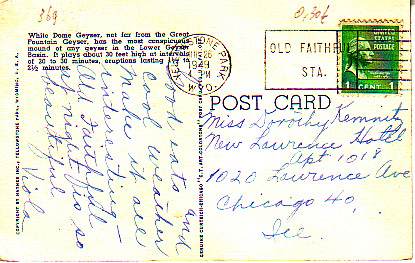 369
0,30€
While Dome Geyser, not far from the Great
Fountain Geyser, has the most conspicuous
mound of any geyser in the Lower Geyser
Basin. It plays about 30 feet high at intervals
of 20 to 30 minutes, eruptions lasting 1½ to
2½ minutes.
YELLOWSTONE PARK
1949
4 PM
WYO.
OLD FAITHFUL
STA.
U.S. POSTAGE
1 CENT 1
POST CARD
Good eats and
cool weather
make it all
interesting—
Old Faithful
at night is so
beautiful
Viola
Miss Dorothy Kemnitz
New Lawrence Hotel
Apt 1018
1020 Lawrence Ave
Chicago 40,
Ill
PUBLISHED BY HAYNES INC., YELLOWSTONE PARK, WYOMING, U.S.A.
GENUINE CURTEICH-CHICAGO "C.T. ART-COLORTONE" POST CARD